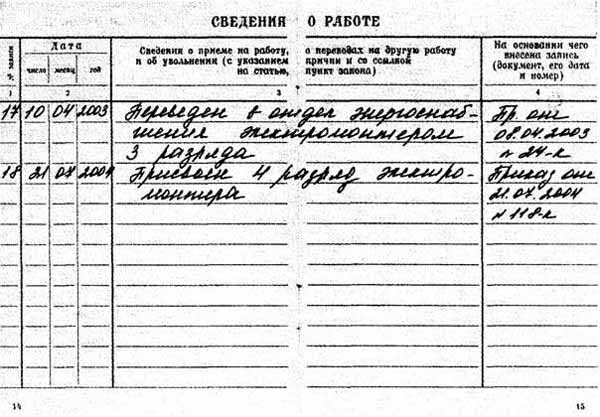 СВЕДЕНИЯ О РАБОТЕ
№ записи
Дата
Сведения о приеме на работу, о переводах на другую работу
и об увольнении (с указанием причин и со ссылкой
на статью, пункт закона)
На основании чего
внесена запись
(документ, его дата
и номер)
число месяц год
1 2 3 4
17 10 04 2003 Переведен в отдел энергоснаб- Пр. от
жения электромонтером 08.04.2003
3 разряда № 24-к
18 21 07 2004 Присвоен 4 разряд электро- Приказ от
монтера 21.07.2004
№ 118-к
14 15